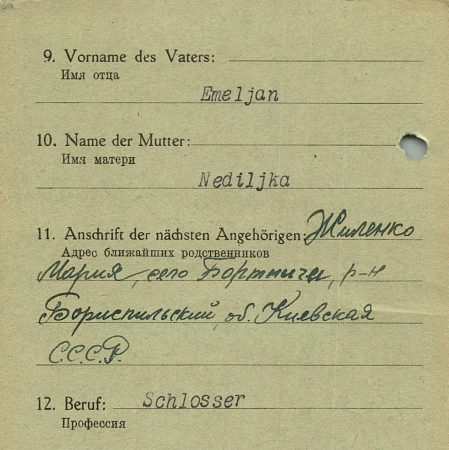 9. Vorname des Vaters:
Имя отца
Emeljan
10. Name der Mutter:
Имя матери
Nediljka
11. Anschrift der nächsten Angehörigen: Жиленко
Адрес ближайших родственников
Мария, село Бортничи, р-н
Бориспильский, об. Киевская
С.С.С.Р.
12. Beruf: Schlosser
Профессия